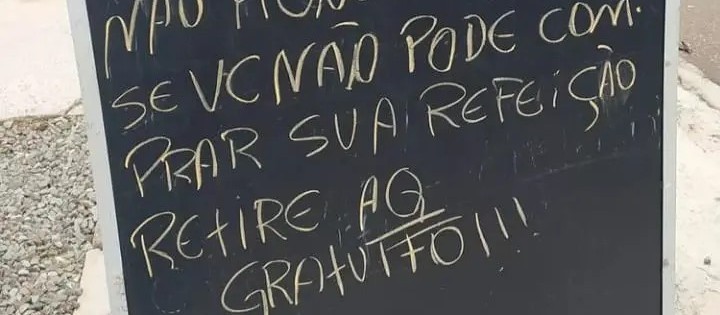 NÃO
SE VC NÃO PODE COM.
PRAR SUA REFEIÇÃO
RETIRE AQ
GRATUITO!!!